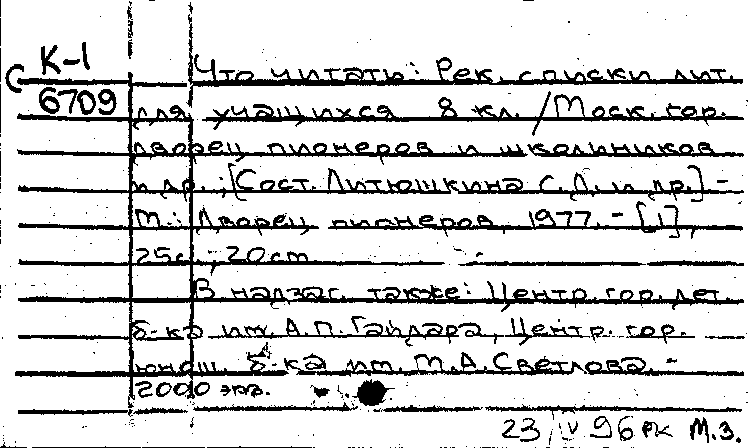 К-1
6709
Что читать: Рек. списки лит.
для учащихся 8 кл. / Моск. гор.
дворец пионеров и школьников
и др.; [Сост. Литюшкина С.Л. и др.] -
М.: Дворец пионеров, 1977. - [1],
25с.; 20 cm
В надзаг. также: Центр. гор. дет.
б-ка им. А.П. Гайдара, Центр. гор.
юнош. б-ка им. М.А. Светлова. -
2000 экз.
23/V 96 рк М.З.